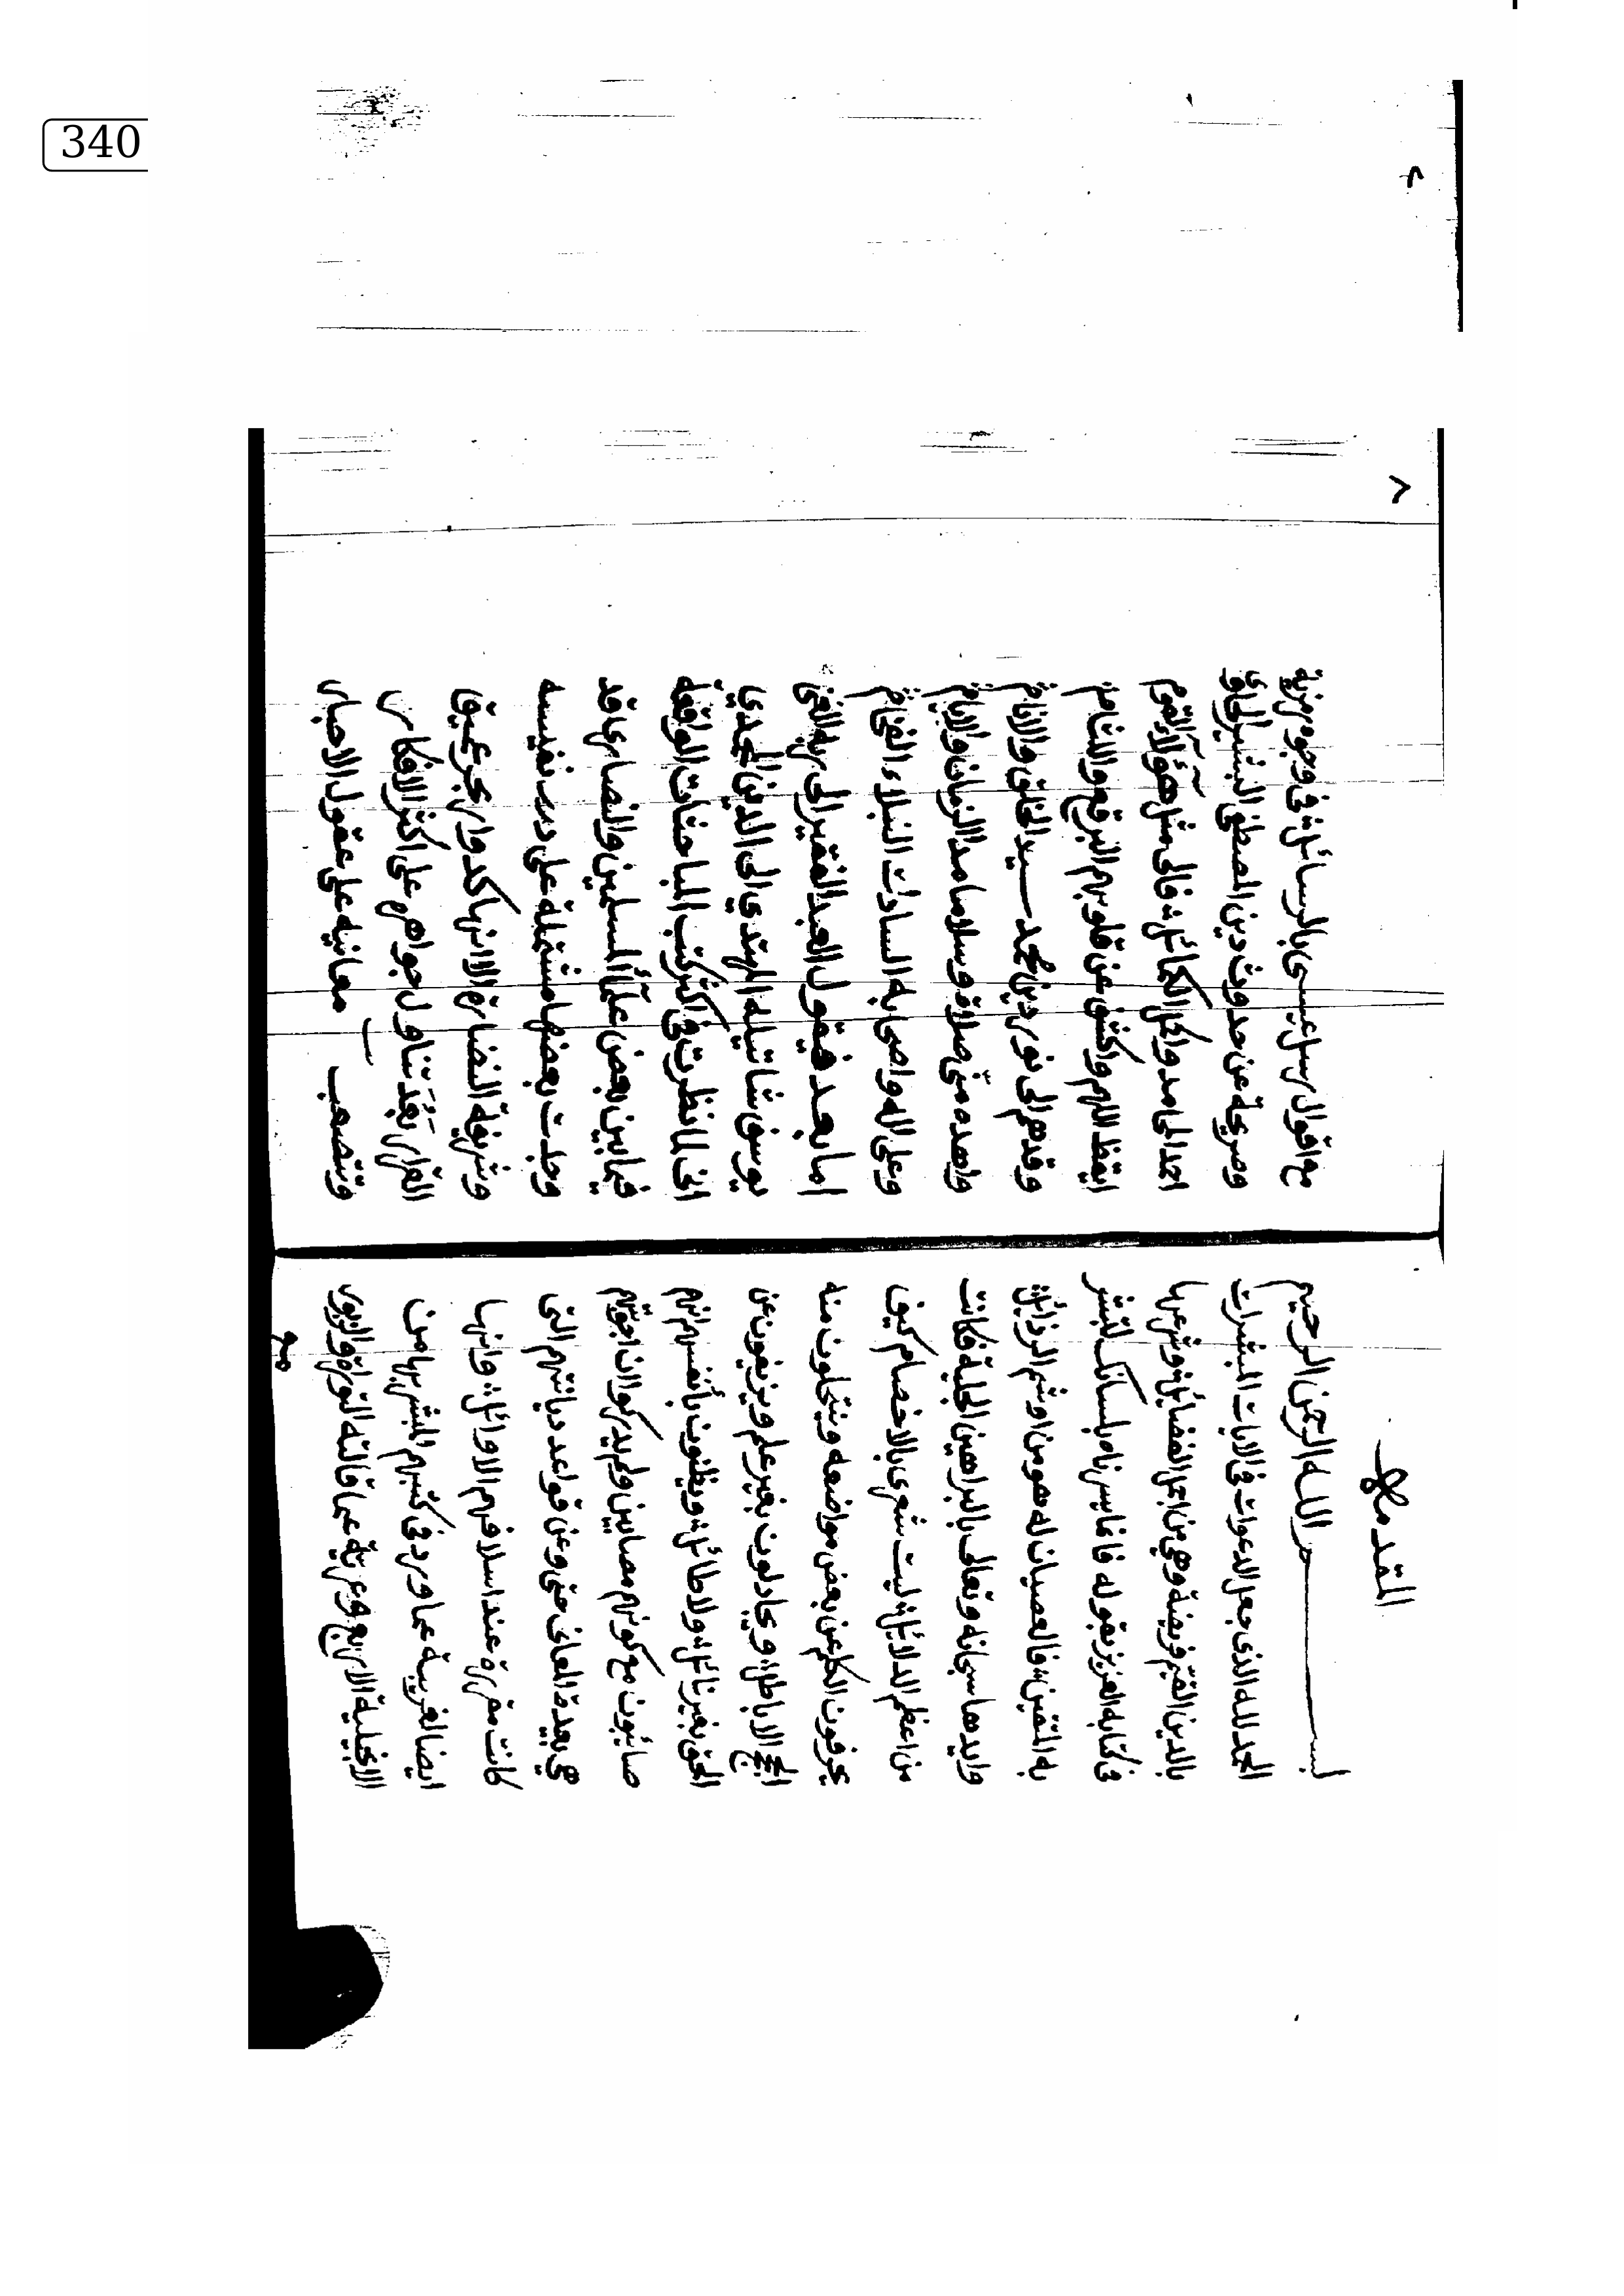 340
المقدمه
بسم الله الرحمن الرحيم
الحمد لله الذى جعل الدعوات فى الايات المبشرات
بالدين القيم فريضة وهى من اجل الفضائل وشرعها
فى كتابه العزيز بقوله فانما يسرناه بلسانك لتبشر
به المتقين فالعصيان له هو من اوشم الرذائل
وايدها سبحانه وتعالى بالبراهين الجلية فكانت
من اعظم الدلائل ليت شعرى بالاخصام كيف
يحرفون الكلم عن بعض مواضعه وينتحلون منه
الحجج الاباطل ويجادلون بغير علم ويزيغون عن
الحق بغير نائل ولا طائل ويظنون بأنفسهم انهم
صائبون مع كونهم مصابين ولم يدركوا ان اجوبتهم
هى بعيدة المعانى حتى وعن قواعد ديانتهم التى
كانت مقررة عند اسلافهم الاوائل وانها
ايضا لغريبة عما ورد فى كتبهم المبشر بها من
الانجيلية الاربع وعرية عما قالته التوراة والزبور
مع
٢
مع اقوال رسل عيسى بالرسائل فى وجوه مزية
وصريحة عن حدوث دين المصطفى البشير لحاوى
احمد المحامد واكمل الكمائل فالى مثل هؤلآء القوم
ايقظ اللهم واكشف عن قلوبهم البرقع واللثام
وقدهم الى نور دين محمد سيد الخلق والانام
واهده منى صلاة وسلاما مد الزمان والايام
وعلى اله واصحابه السادات النبلاء الفخام
اما بعد فيقول العبد الفقير الى ربه الغنى
يوسف شاتيله المهتدي الى الدين المحمدي
انى لما نظرت فى اكثر كتب المباحثات الواقعة
فيما بين بعض علمآء المسلمين والنصارى قد
وجدت بعضها مشتملة على درر نفيسه
وشريفة النضارة الا انها كدرار فى بحر عميق
القرار بَعُدَ تناول جواهره على اكثر الافكار
وتتصعب معانيه على عقول الاحبار